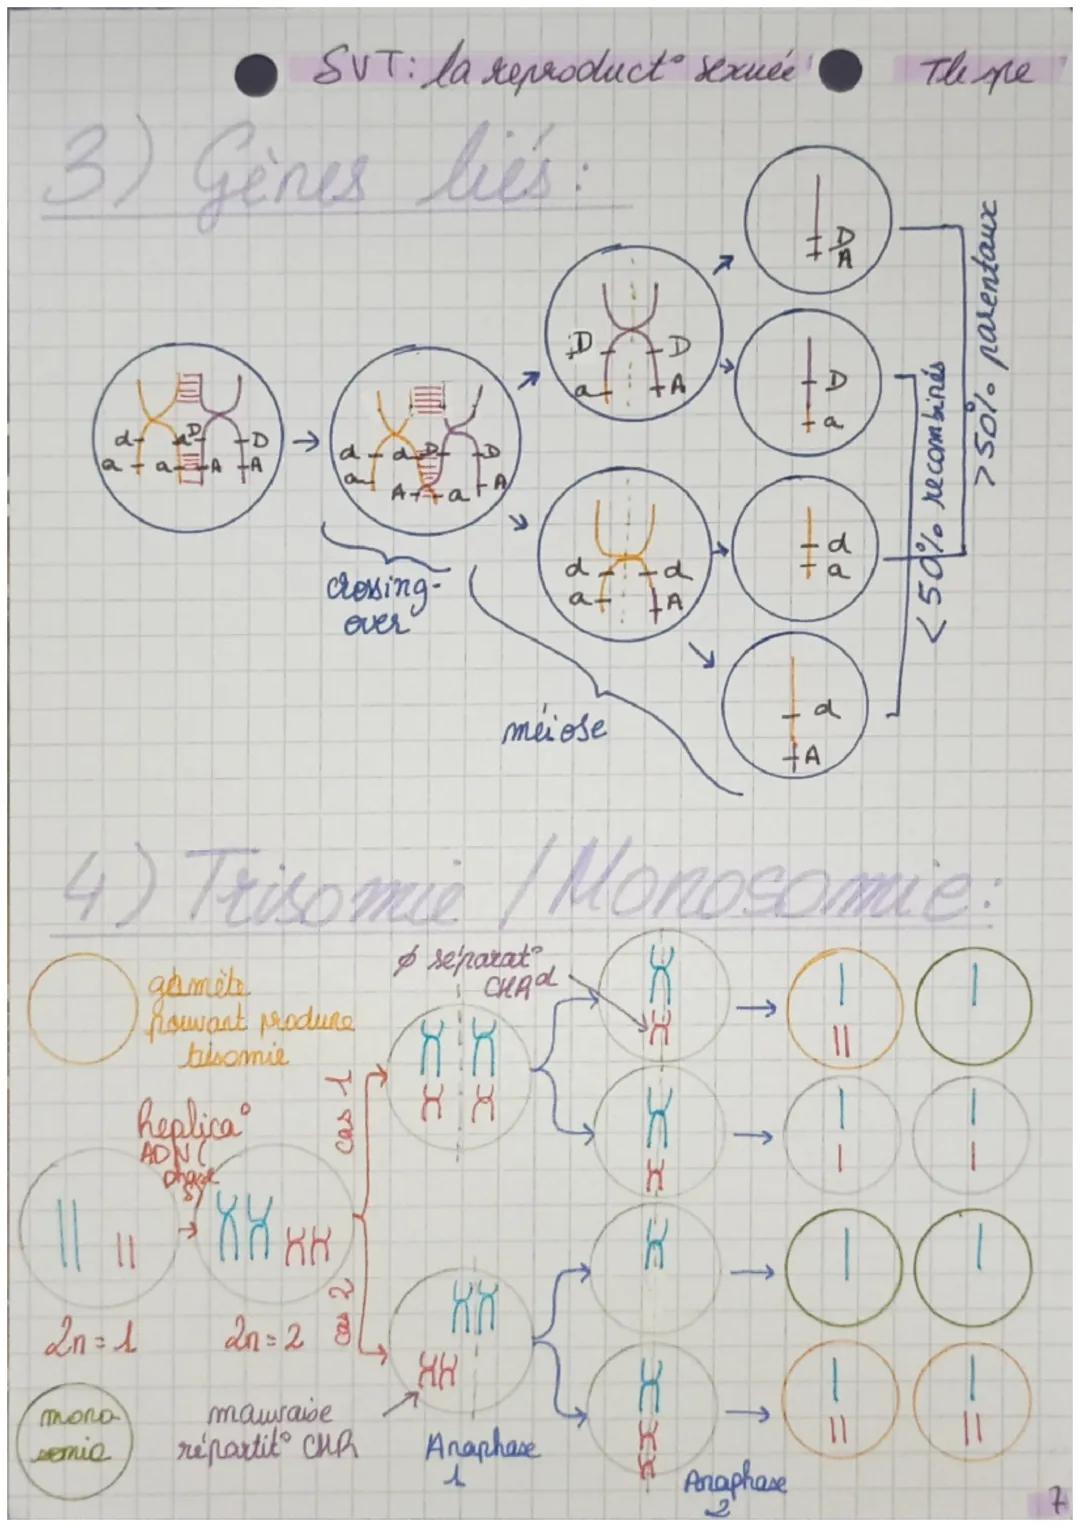 SVT: la reproduct° sexuée
Tle spe
3) Gènes liés:
d d D D
a a A A
d d D D
a A a A
crossing-
over
méiose
D D
a A
d d
a A
D
A
D
a
d
a
d
A
< 50% recombinés
> 50% parentaux
4) Trisomie / Monosomie:
gamète
pouvant produire
trisomie
Replica°
ADN (
phase
S)
2n = 1
2n = 2
cas 1
cas 2
ø séparat°
CHR d
mauvaise
répartit° CHR
mono
somie
Anaphase
1
Anaphase
2
7